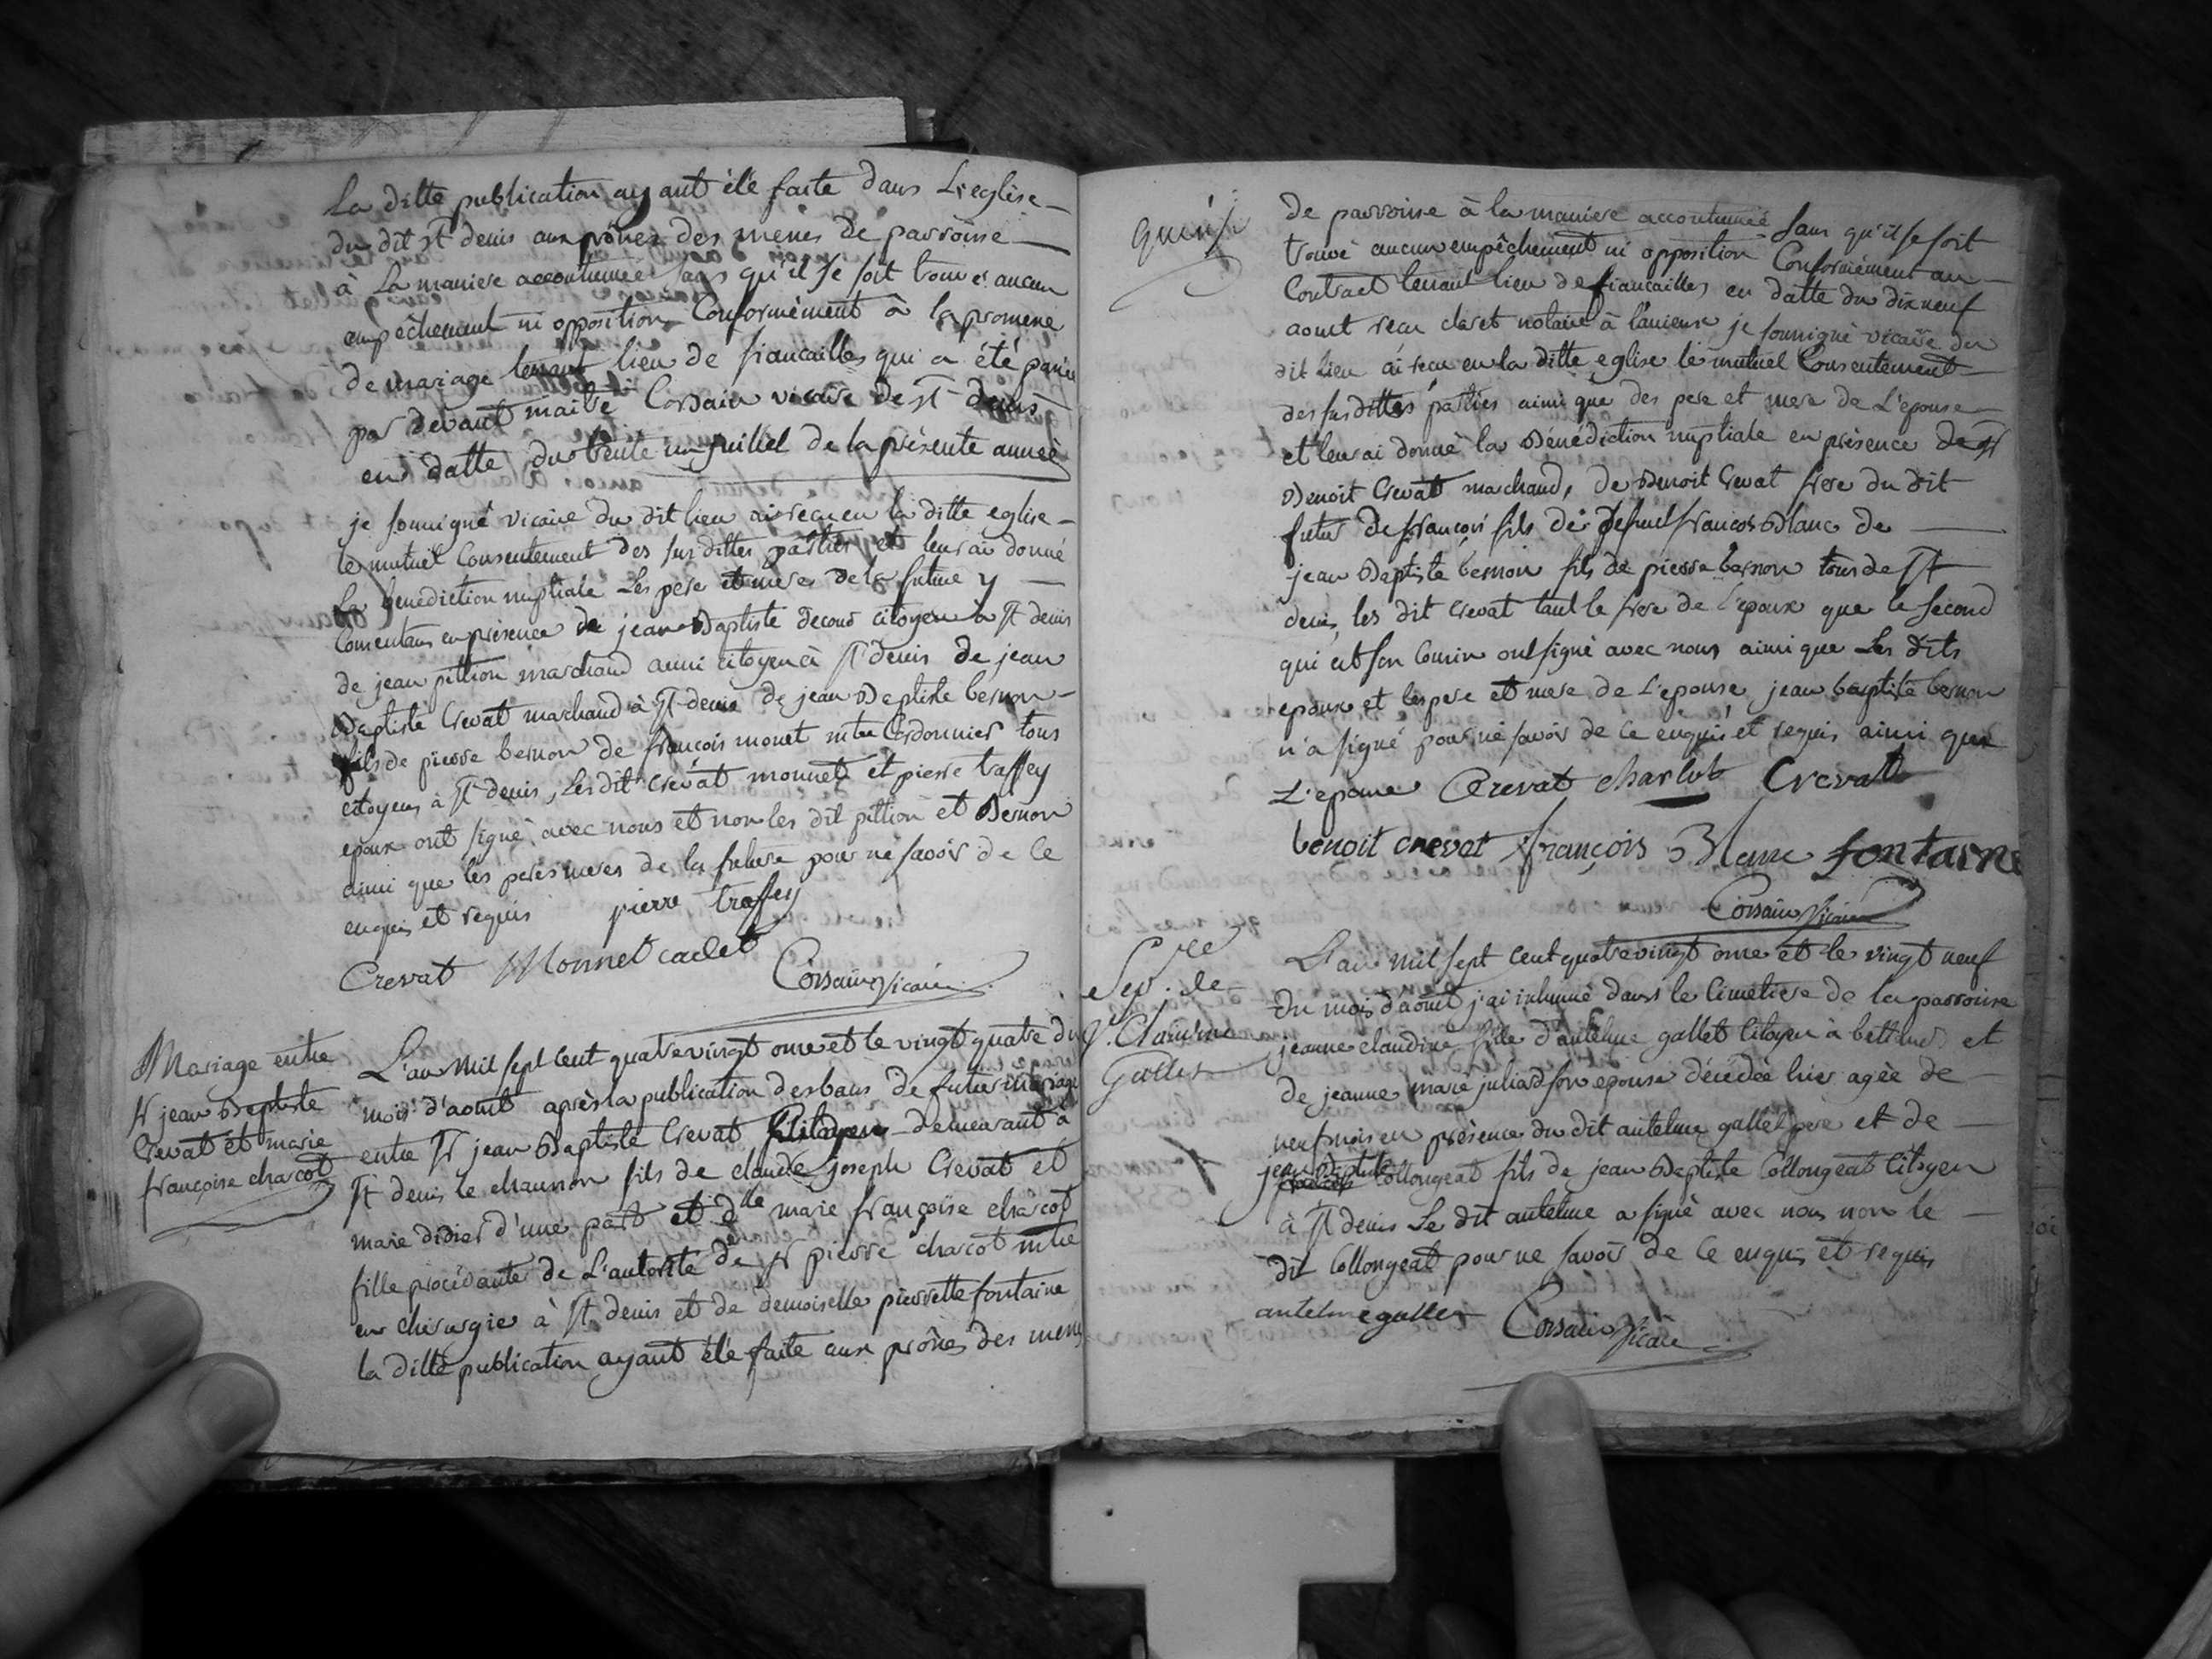 La ditte publication ayant été faite dans L'eglise
du dit St denis aux prônes des messes de parroisse
à La maniere accoutumée sans qu'il se soit trouvé aucun
empêchement ni opposition Conformément à la promesse
de mariage tenant lieu de fiancailles qui a été passée
par devant maitre Corsain vicaire de St denis
en datte du trente un juillet de la présente année
je soussigné vicaire du dit lieu ai recu en la ditte eglise
le mutuel Consentement des sus dittes parties et leur ai donné
La benediction nuptiale Les pere et mere de la future y
Consentans en présence de jean Baptiste decour citoyen à St denis
de jean pittion marchand aussi citoyen à St denis de jean
Baptiste Crevat marchand à St denis de jean Baptiste bernon
fils de pierre bernon de françois monet mtre Cordonnier tous
citoyens à St denis, Les dit Crevat monnet et pierre traffey
epoux ont signé avec nous et non les dit pittion et Bernon
ainsi que les peres meres de la future pour ne savoir de ce
enquis et requis pierre traffey
Crevat Monnet cadet Corsain Vicaire
Mariage entre
Sr jean Baptiste
Crevat et marie
françoise charcot
L'an Mil sept Cent quatre vingt onze et le vingt quatre du
mois d'aoust après la publication des bans de futur mariage
entre Sr jean Baptiste Crevat Citoyen demeurant à
St denis le chausson fils de claude joseph Crevat et
marie didier d'une part et dlle marie françoise charcot
fille procédante de L'autorité de Sr pierre charcot mtre
en chirurgie à St denis et de demoiselle pierrette fontaine
la ditte publication ayant été faite aux prônes des messes
de parroisse à la maniere accoutumée sans qu'il se soit
trouvé aucun empêchement ni opposition Conformément au
Contract tenant lieu de fiancailles en datte du dix neuf
aoust recu claret notaire à lagnieux je soussigné vicaire du
dit Lieu ai recu en la ditte eglise le mutuel Consentement
des sus dittes parties ainsi que des pere et mere de L'epouse
et leur ai donné la Bénédiction nuptiale en présence de Sr
Benoit Crevat marchand, de Benoit Crevat frere du dit
futur de françois fils de defunt francois Blanc de
jean Baptiste bernon fils de pierre bernon tous de St
denis, les dit Crevat tant le frere de l'epoux que le second
qui est son Cousin ont signé avec nous ainsi que Les dits
epoux et les pere et mere de L'epouse, jean baptiste bernon
n'a signé pour ne savoir de ce enquis et requis ainsi que
L'epouse Crevat charlot Crevat
benoit crevat françois Blanc fontaine
Corsain Vicaire
Sepre de
J. Claudine
Gallet
L'an Mil sept Cent quatre vingt onze et le vingt neuf
du mois d'aoust j'ai inhumé dans le Cimetiere de la parroisse
jeanne claudine fille d'antelme gallet Citoyen à bettant et
de jeanne marie juliard son epouse décédée hier agée de
neuf mois en présence du dit antelme gallet pere et de
jean Baptiste Collongeat fils de jean Baptiste Collongeat Citoyen
à St denis Le dit antelme a signé avec nous non le
dit Collongeat pour ne savoir de ce enquis et requis
antelme gallet Corsain Vicaire